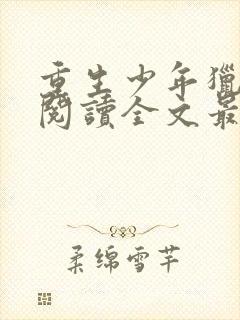 重生少年獵
閱讀全文最
柔綿雪芊